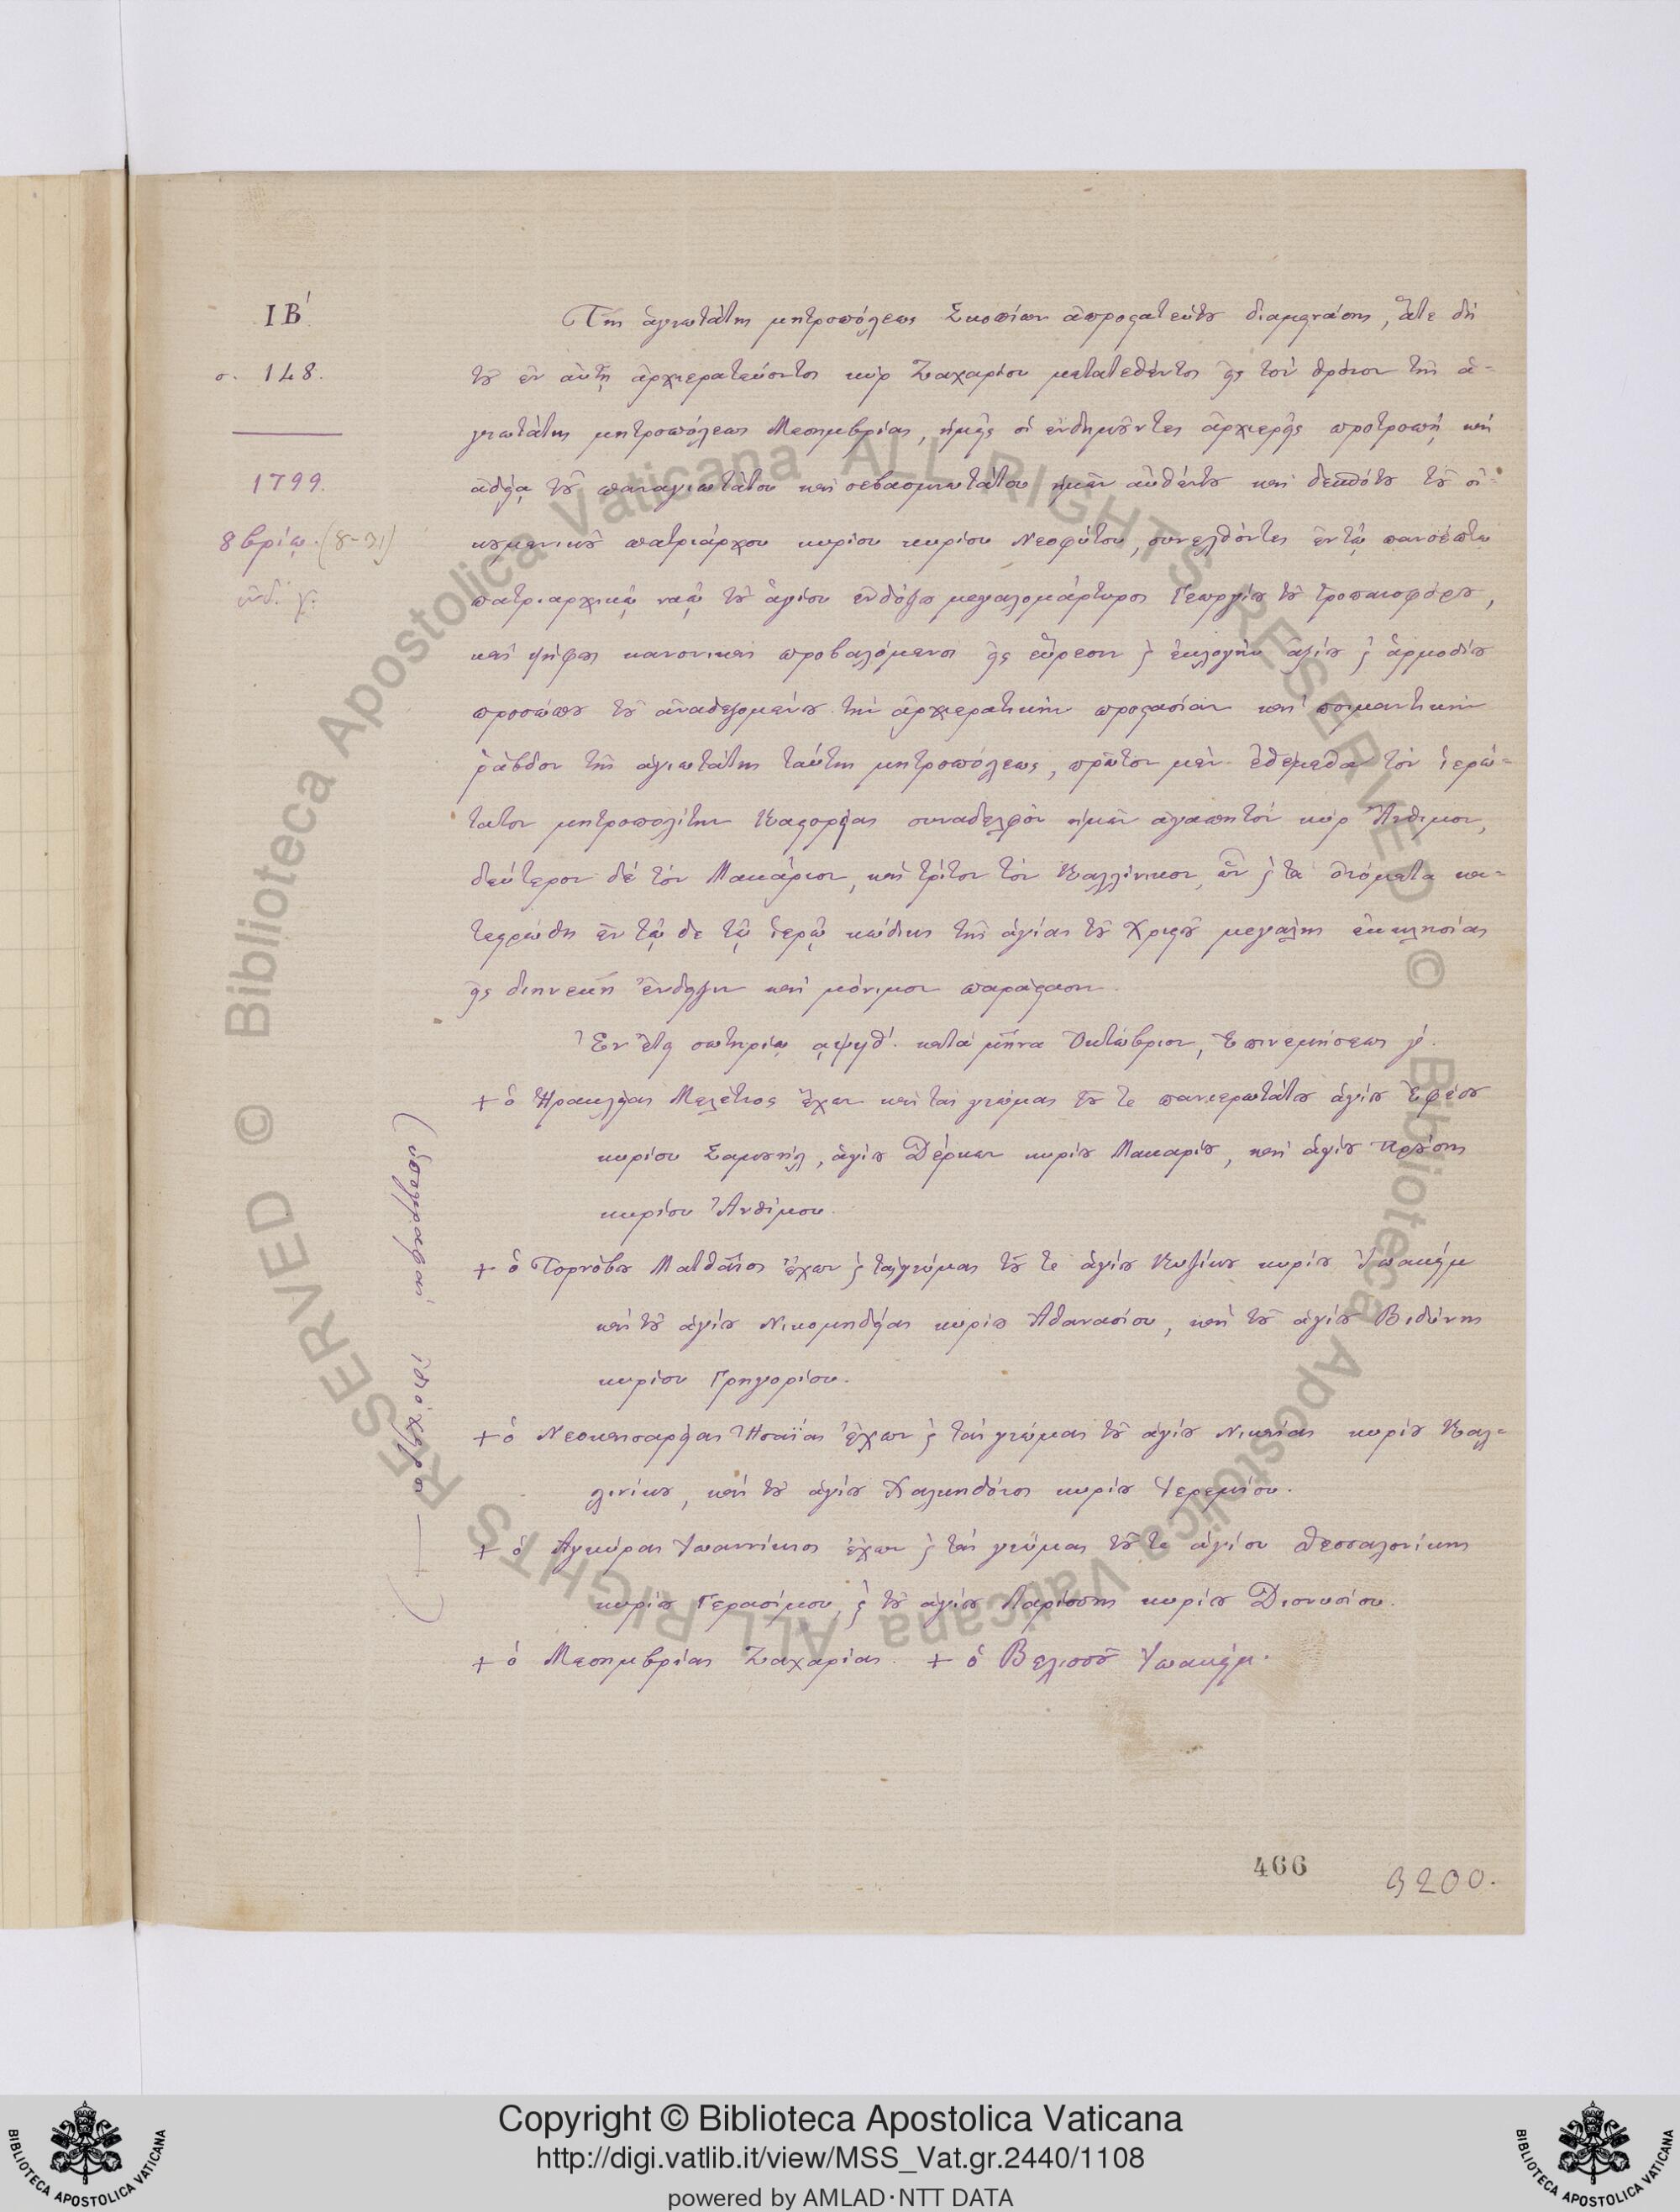 ΙΒ΄
σ. 148.
1799.
8βρίῳ. (8-31)
ἰνδ. γ΄.
Τῆς ἁγιωτάτης μητροπόλεως Σκοπίων ἀπροστατεύτου διαμεινάσης, ἅτε δὴ
τοῦ ἐν αὐτῇ ἀρχιερατεύοντος κὺρ Ζαχαρίου μετατεθέντος εἰς τὸν θρόνον τῆς ἁ-
γιωτάτης μητροπόλεως Μεσημβρίας, ἡμεῖς οἱ ἐνδημοῦντες ἀρχιερεῖς προτροπῇ καὶ
ἀδείᾳ τοῦ παναγιωτάτου καὶ σεβασμιωτάτου ἡμῶν αὐθέντου καὶ δεσπότου τοῦ οἰ-
κουμενικοῦ πατριάρχου κυρίου κυρίου Νεοφύτου, συνελθόντες ἐν τῷ πανσέπτῳ
πατριαρχικῷ ναῷ τοῦ ἁγίου ἐνδόξου μεγαλομάρτυρος Γεωργίου τοῦ τροπαιοφόρου,
καὶ ψήφους κανονικὰς προβαλόμενοι εἰς εὕρεσιν ϗ ἐκλογὴν ἀξίου ϗ ἁρμοδίου
προσώπου τοῦ ἀναδεξομένου τὴν ἀρχιερατικὴν προστασίαν καὶ ποιμαντικὴν
ῥάβδον τῆς ἁγιωτάτης ταύτης μητροπόλεως, πρῶτον μὲν ἐθέμεθα τὸν ἱερώ-
τατον μητροπολίτην Καστορίας συναδελφὸν ἡμῶν ἀγαπητὸν κὺρ Ἄνθιμον,
δεύτερον δὲ τὸν Μακάριον, καὶ τρίτον τὸν Καλλίνικον, ὧν ϗ τὰ ὀνόματα κα-
τεστρώθη ἐν τῷδε τῷ ἱερῷ κώδικι τῆς ἁγίας τοῦ Χριστοῦ μεγάλης ἐκκλησίας
εἰς διηνεκῆ ἔνδειξιν καὶ μόνιμον παράστασιν.
Ἐν ἔτει σωτηρίῳ ͵αψϟθ΄. κατὰ μῆνα Ὀκτώβριον, Ἐπινεμήσεως γ΄.
+ ὁ Ἡρακλείας Μελέτιος ἔχων καὶ τὰς γνώμας τοῦ τε πανιερωτάτου ἁγίου Ἐφέσου
κυρίου Σαμουήλ, ἁγίου Δέρκων κυρίου Μακαρίου, καὶ ἁγίου Προύσης
κυρίου Ἀνθίμου.
+ ὁ Τορνόβου Ματθαῖος ἔχων ϗ τὰς γνώμας τοῦ τε ἁγίου Κυζίκου κυρίου Ἰωακεὶμ
καὶ τοῦ ἁγίου Νικομηδείας κυρίου Ἀθανασίου, καὶ τοῦ ἁγίου Βιδύνης
κυρίου Γρηγορίου.
+ ὁ Νεοκαισαρείας Ἡσαΐας ἔχων ϗ τὰς γνώμας τοῦ ἁγίου Νικαίας κυρίου Καλ-
λινίκου, καὶ τοῦ ἁγίου Χαλκηδόνος κυρίου Ἱερεμίου.
+ ὁ Ἀγκύρας Ἰωαννίκιος ἔχων ϗ τὰς γνώμας τοῦ τε ἁγίου Θεσσαλονίκης
κυρίου Γερασίμου, ϗ τοῦ ἁγίου Λαρίσσης κυρίου Διονυσίου.
+ ὁ Μεσημβρίας Ζαχαρίας. + ὁ Βελισσοῦ Ἰωακείμ.
ὑπογραφαὶ ἰδιόχειροι
466
3200.
Copyright © Biblioteca Apostolica Vaticana
http://digi.vatlib.it/view/MSS_Vat.gr.2440/1108
powered by AMLAD·NTT DATA
BIBLIOTECA APOSTOLICA VATICANA
BIBLIOTECA APOSTOLICA VATICANA
© Biblioteca Apostolica Vaticana ALL RIGHTS RESERVED © Biblioteca Apostolica Vaticana ALL RIGHTS RESERVED